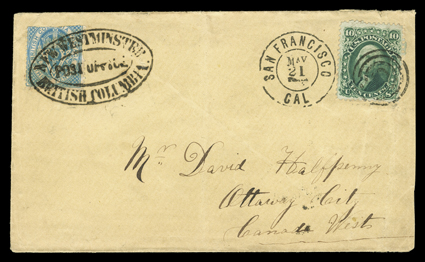 NEW WESTMINSTER
POST OFFICE
BRITISH COLUMBIA
SAN FRANCISCO
MAY
21
CAL
10 10
Mr David Halfpenny
Ottaway Cit
Canada West